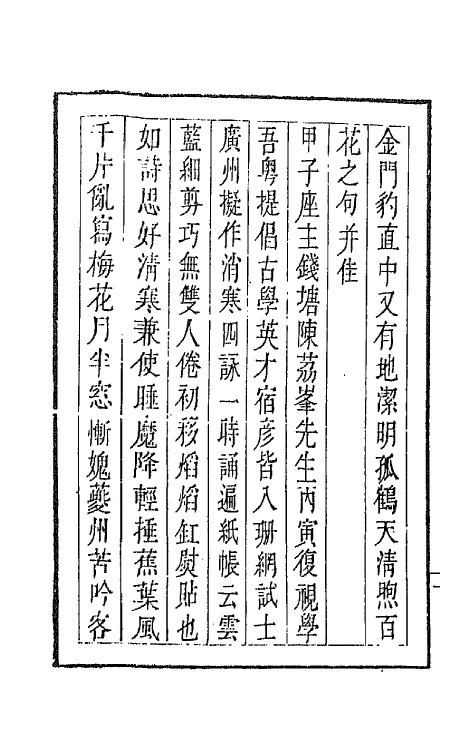 金門豹直中又有地潔明孤鶴天清煦百
花之句并佳
甲子座主錢塘陳荔峯先生丙寅復視學
吾粵提倡古學英才宿彥皆入珊網試士
廣州擬作消寒四詠一時誦遍紙帳云雲
藍細剪巧無雙人倦初移熖熖釭熨貼也
如詩思好清寒兼使睡魔降輕捶蕉葉風
千片亂寫梅花月半窓慚媿夔州苦吟客